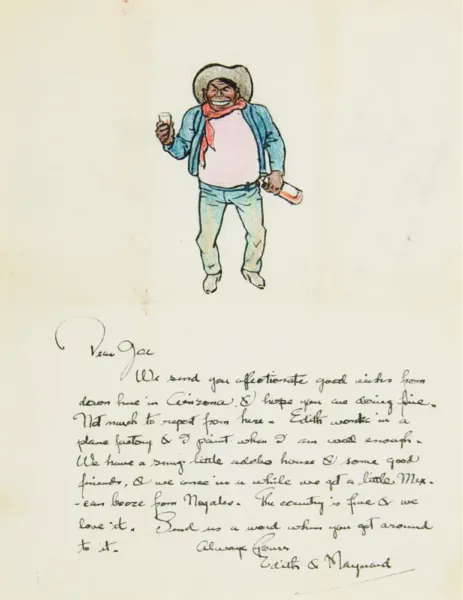 Dear Joe
We send you affectionate good wishes from
down here in Arizona, & hope you are doing fine.
Not much to report from here - Edith works in a
plane factory & I paint when I am well enough.
We have a snug little adobe house & some good
friends, & we once in a while we get a little Mex-
-ican booze from Nogales. The country is fine & we
love it. Send us a word when you get around
to it. Always Yours
Edith & Maynard